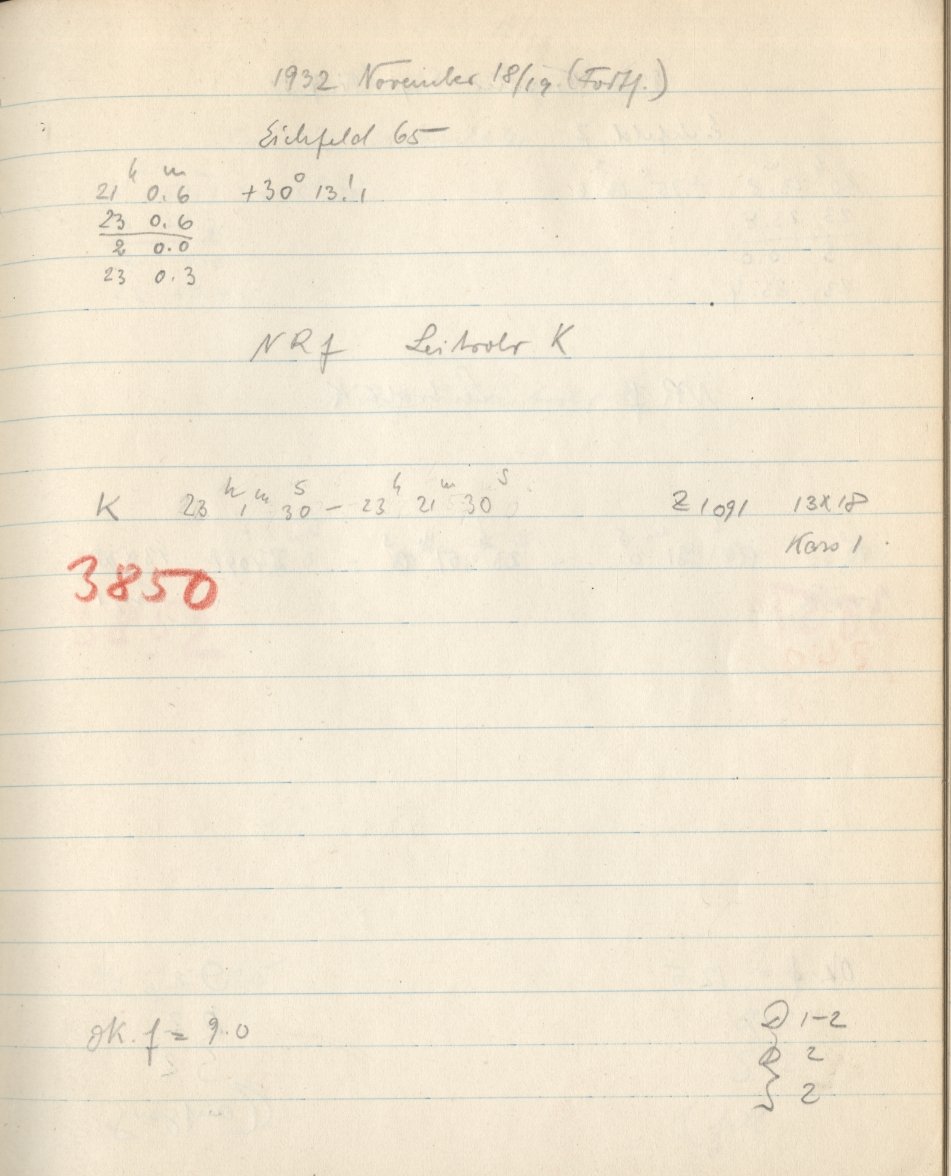 1932 November 18/19 (Fortf.)
Eichfeld 65
21 h 0.6 m +30° 13.'1
23 0.6
2 0.0
23 0.3
NRf Leitrohr K
K 23 h 1 m 30 s – 23 h 21 m 30 s Z 1091 13x18
Kass 1
3850
OK. f = 9.0
D 1-2
R 2
S 2